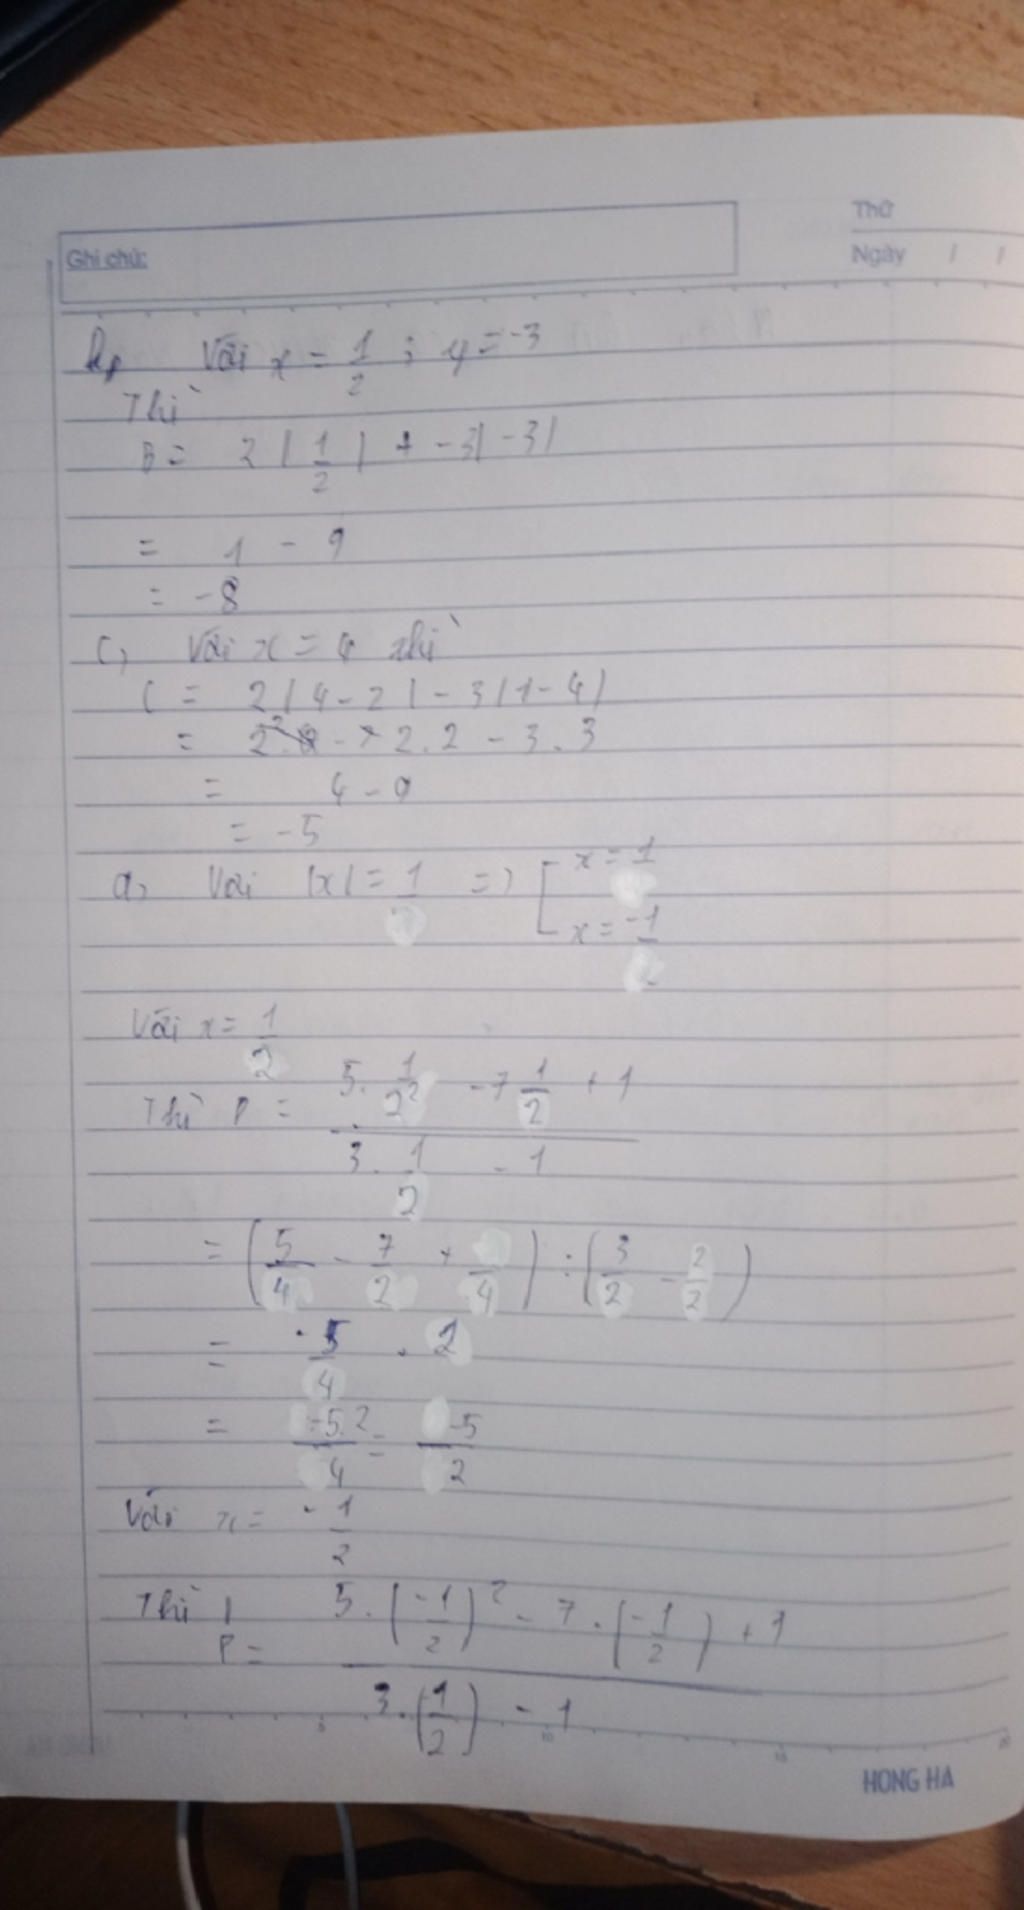 Thứ
Ghi chú:
Ngày / /
b, Với x = 1/2 ; y = -3
Thì
B = 2 | 1/2 | + -3| -3|
= 1 - 9
= -8
c, Với x = 4 thì
C = 2 | 4 - 2 | - 3 | 1 - 4 |
= 2.2 - 3.3
= 4 - 9
= -5
a, Với |x| = 1 => [ x = 1
x = -1
Với x = 1/2
Thì P = (5. 1/2² - 7 1/2 + 1) / (3. 1/2 - 1)
= ( 5/4 - 7/2 + /4 ) : ( 3/2 - 2/2 )
= -5/4 . 2
= -5.2/4 = -5/2
Với x = -1/2
Thì
P = (5. (-1/2)² - 7. (-1/2) + 1) / (3. (-1/2) - 1)
5 10 15 20
HONG HA